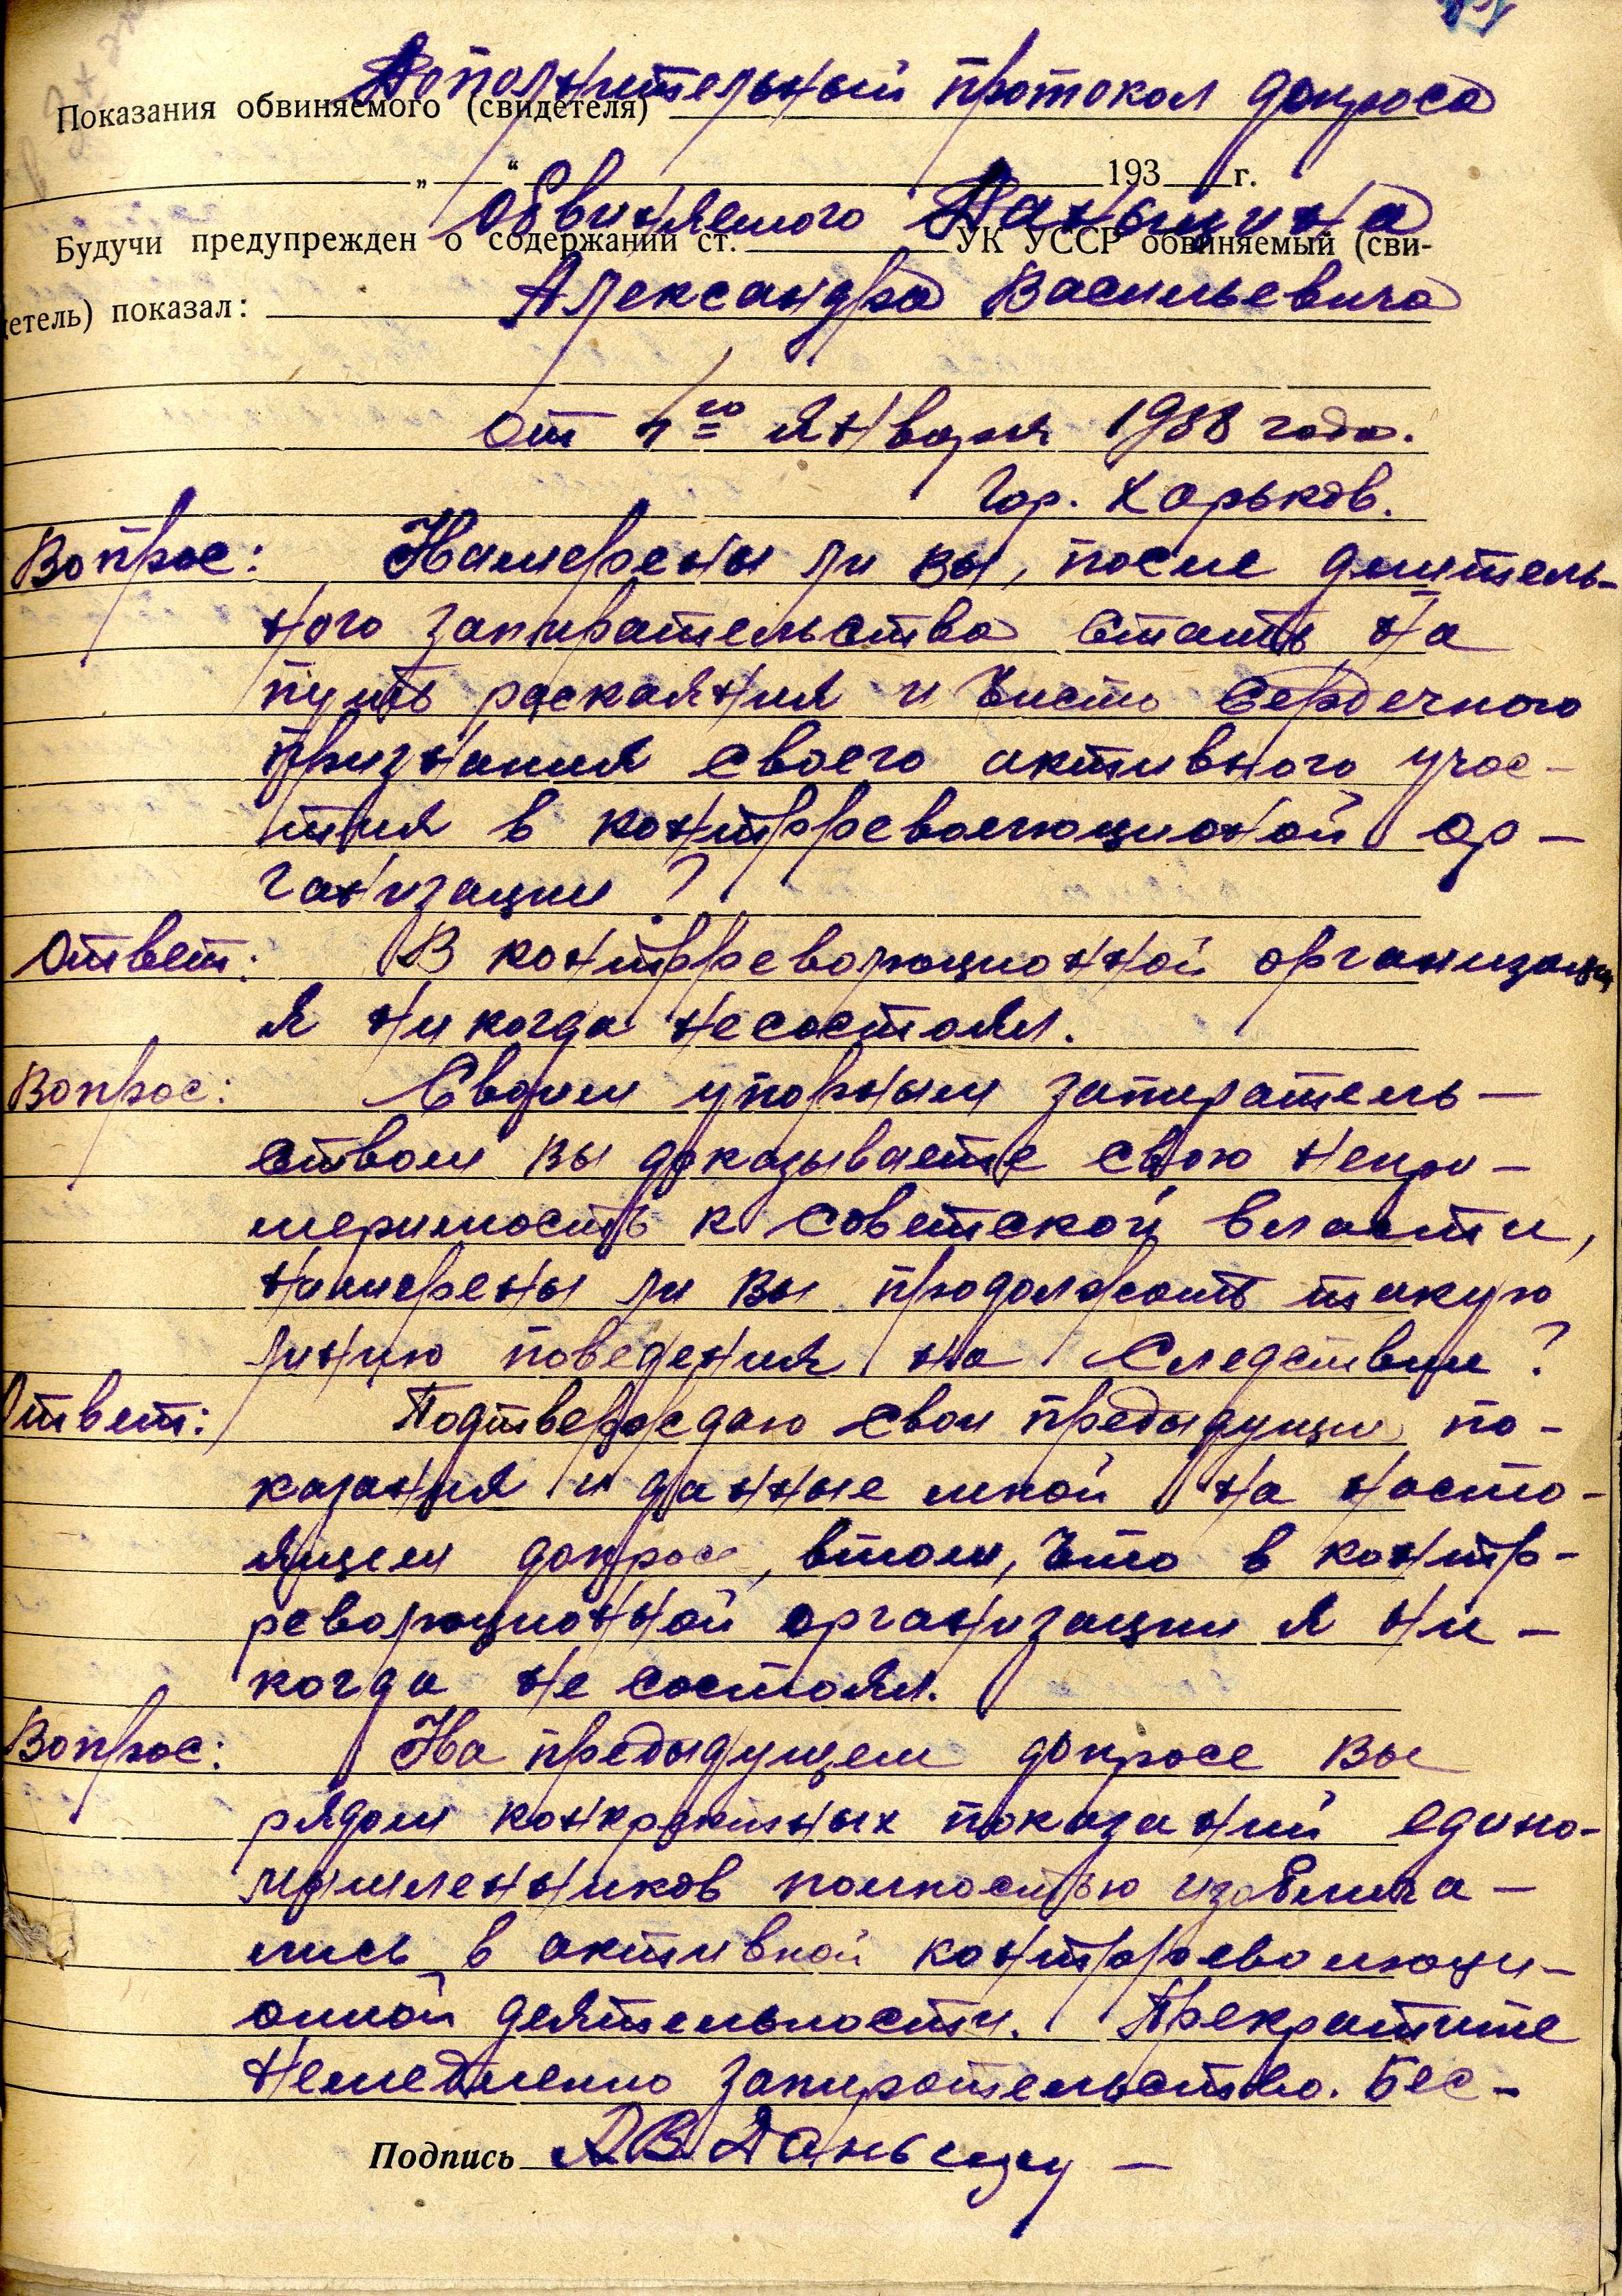 Дополнительный протокол допроса
Показания обвиняемого (свидетеля)
„ “ 193 г.
обвиняемого Даньшина
Будучи предупрежден о содержании ст. УК УССР обвиняемый (сви-
детель) показал:
Александра Васильевича
от 4го января 1938 года.
Гор. Харьков.
Вопрос: Намерены ли вы, после длитель-
ного запирательства стать на
путь раскаяния и чисто сердечного
признания своего активного учас-
тия в контрреволюционой ор-
ганизации?
Ответ: В контрреволюционной организации
я никогда несостоял.
Вопрос: Своим упорным запиратель-
ством вы доказываете свою непри-
меримость к советской власти,
намерены ли вы продолжать такую
линию поведения на следствии?
Ответ: Подтверждаю свои предыдущие по-
казания и данные мной на насто-
ящем допросе, втом, что в контр-
революционной организации я ни-
когда не состоял.
Вопрос: На предыдущем допросе вы
рядом конкретных показаний едино-
мышленников полностью изоблича-
лись в активной контрреволюци-
онной деятельности. Прекратите
немедленно запирательство. Бес-
Подпись А.В. Даньшин